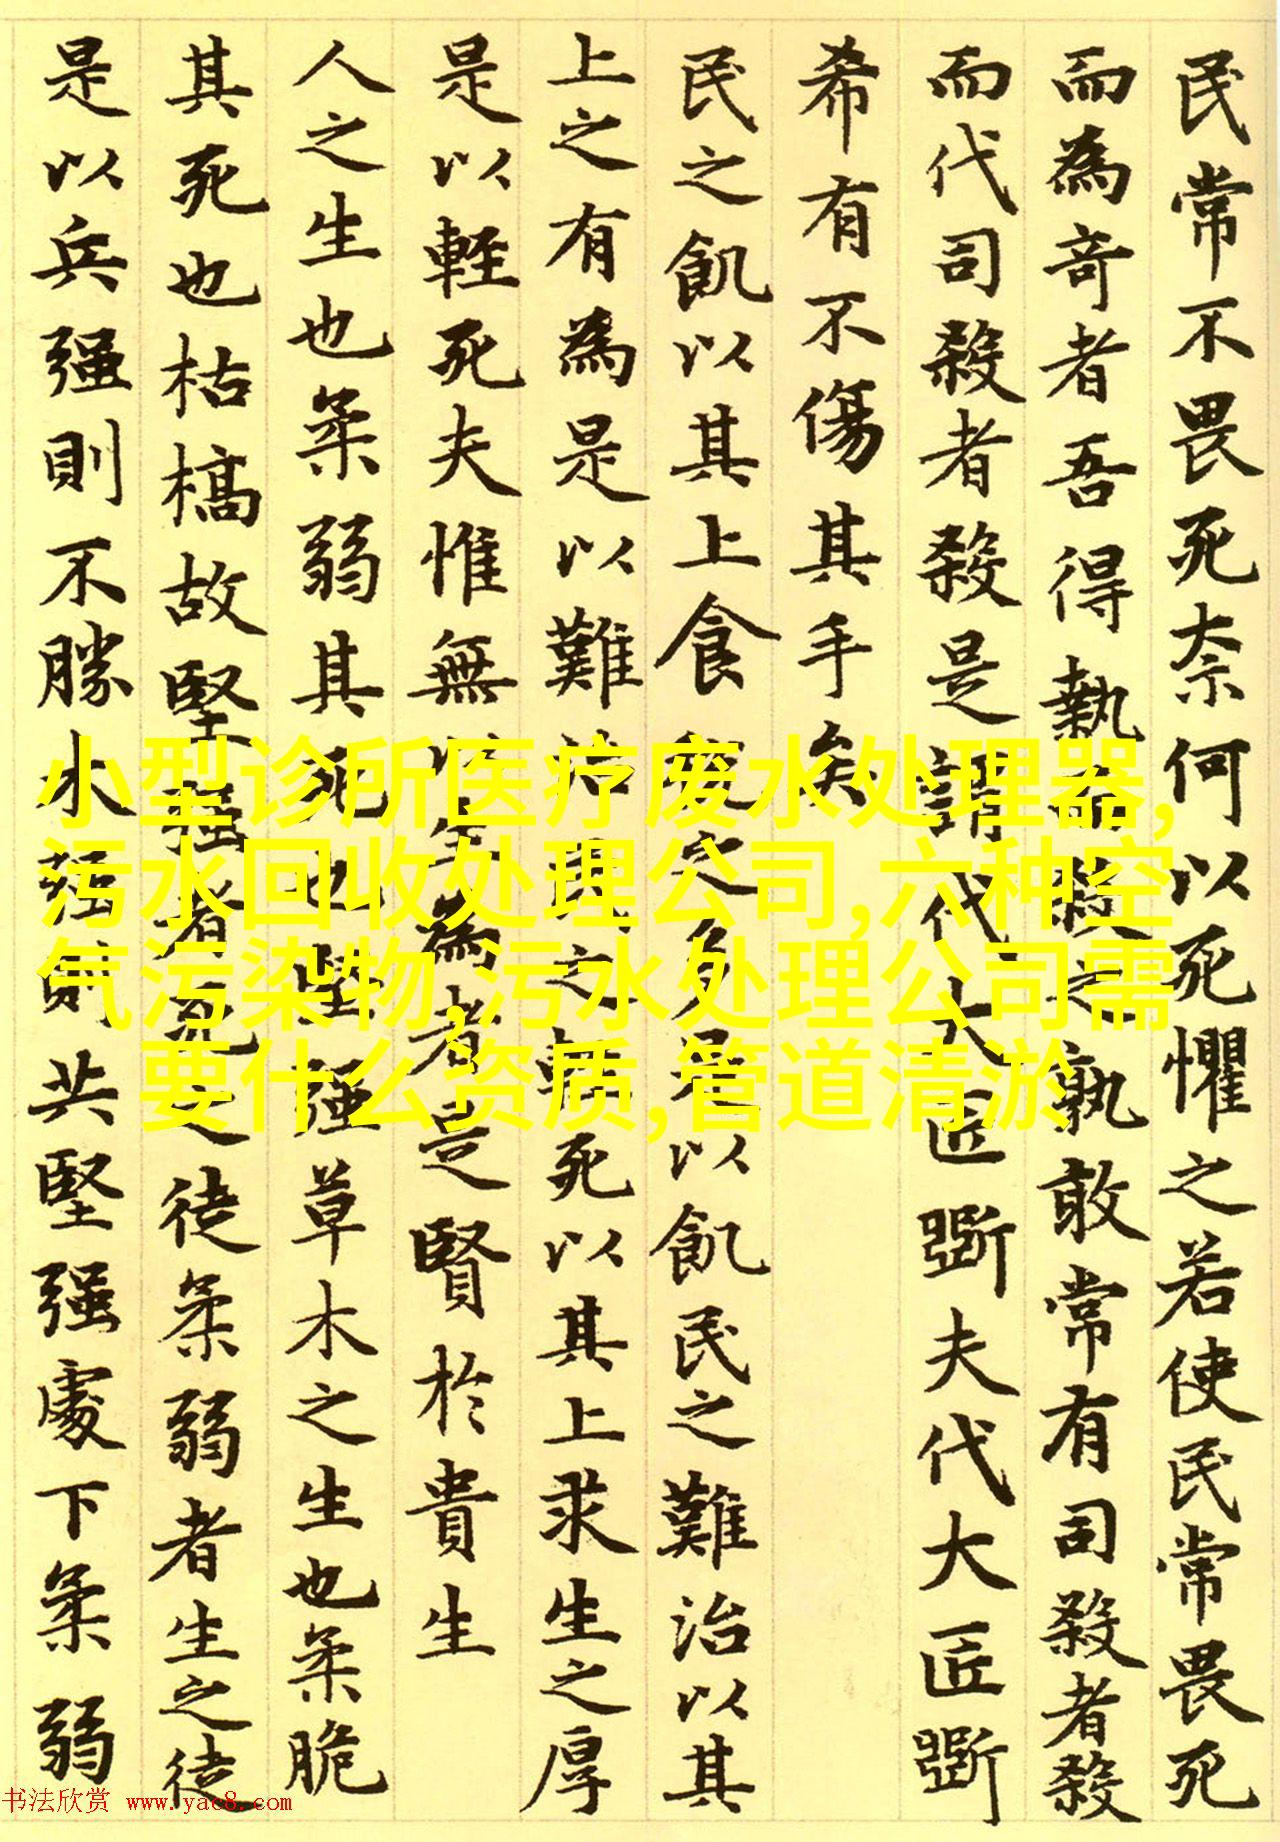 民常不畏死奈何以死懼之若使民常畏死
而為竒者吾得執而殺之孰敢常有司殺者殺
而代司殺者殺是謂代大匠斲夫代大匠斲
希有不傷其手矣
民之飢以其上食稅之多是以飢民之難治以其
上之有為是以難治民之輕死以其上求生之厚
是以輕死夫惟無以生為者是賢於貴生
人之生也柔弱其死也堅强草木之生也柔脆
其死也枯槁故堅强者死之徒柔弱者生之徒
是以兵强則不勝木强則共堅强處下柔弱
小型诊所医疗废水处理器,
污水回收处理公司,六种空
气污染物,污水处理公司需
要什么资质,管道清淤
书法欣赏 www.yac8.com